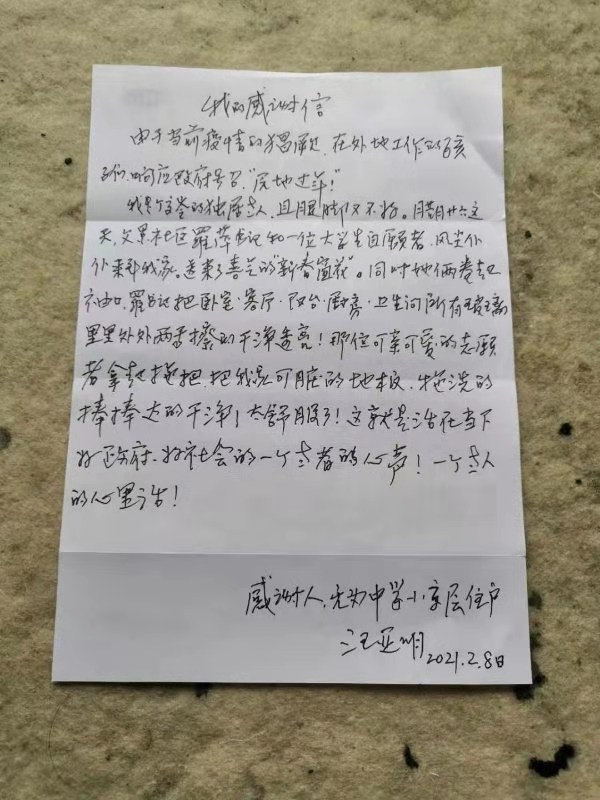 我的感谢信
由于当前疫情的猖獗，在外地工作的孩
子们，响应政府号召，"原地过年！"
我是个空巢的独居老人，且腿脚又不好。腊月廿六这
天，社区罗萍书记和一位大学生自愿者，风尘仆
仆来到我家。送来了喜气的"新春窗花"。同时她俩卷起
袖口，罗书记把卧室、客厅、阳台、厨房、卫生间所有玻璃
里里外外两手擦的干净透亮！那位可亲可爱的志愿
者拿起拖把，把我家可脏的地板，拖洗的
棒棒达的干净！太舒服了！这就是活在当下
好政府、好社会的一个老者的心声！一个老人
的心里话！
感谢人，中学小高层住户
汪亚明 2021.2.8日